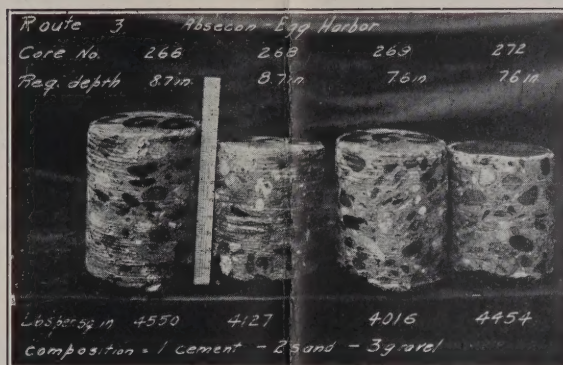 Route 3. Absecon-Egg Harbor
Core No. 266 268 269 272
Req. depth 8.7in. 8.7in. 7.6in 7.6in
Lbs per sq in 4550 4127 4016 4454
composition = 1 cement - 2 sand - 3 gravel